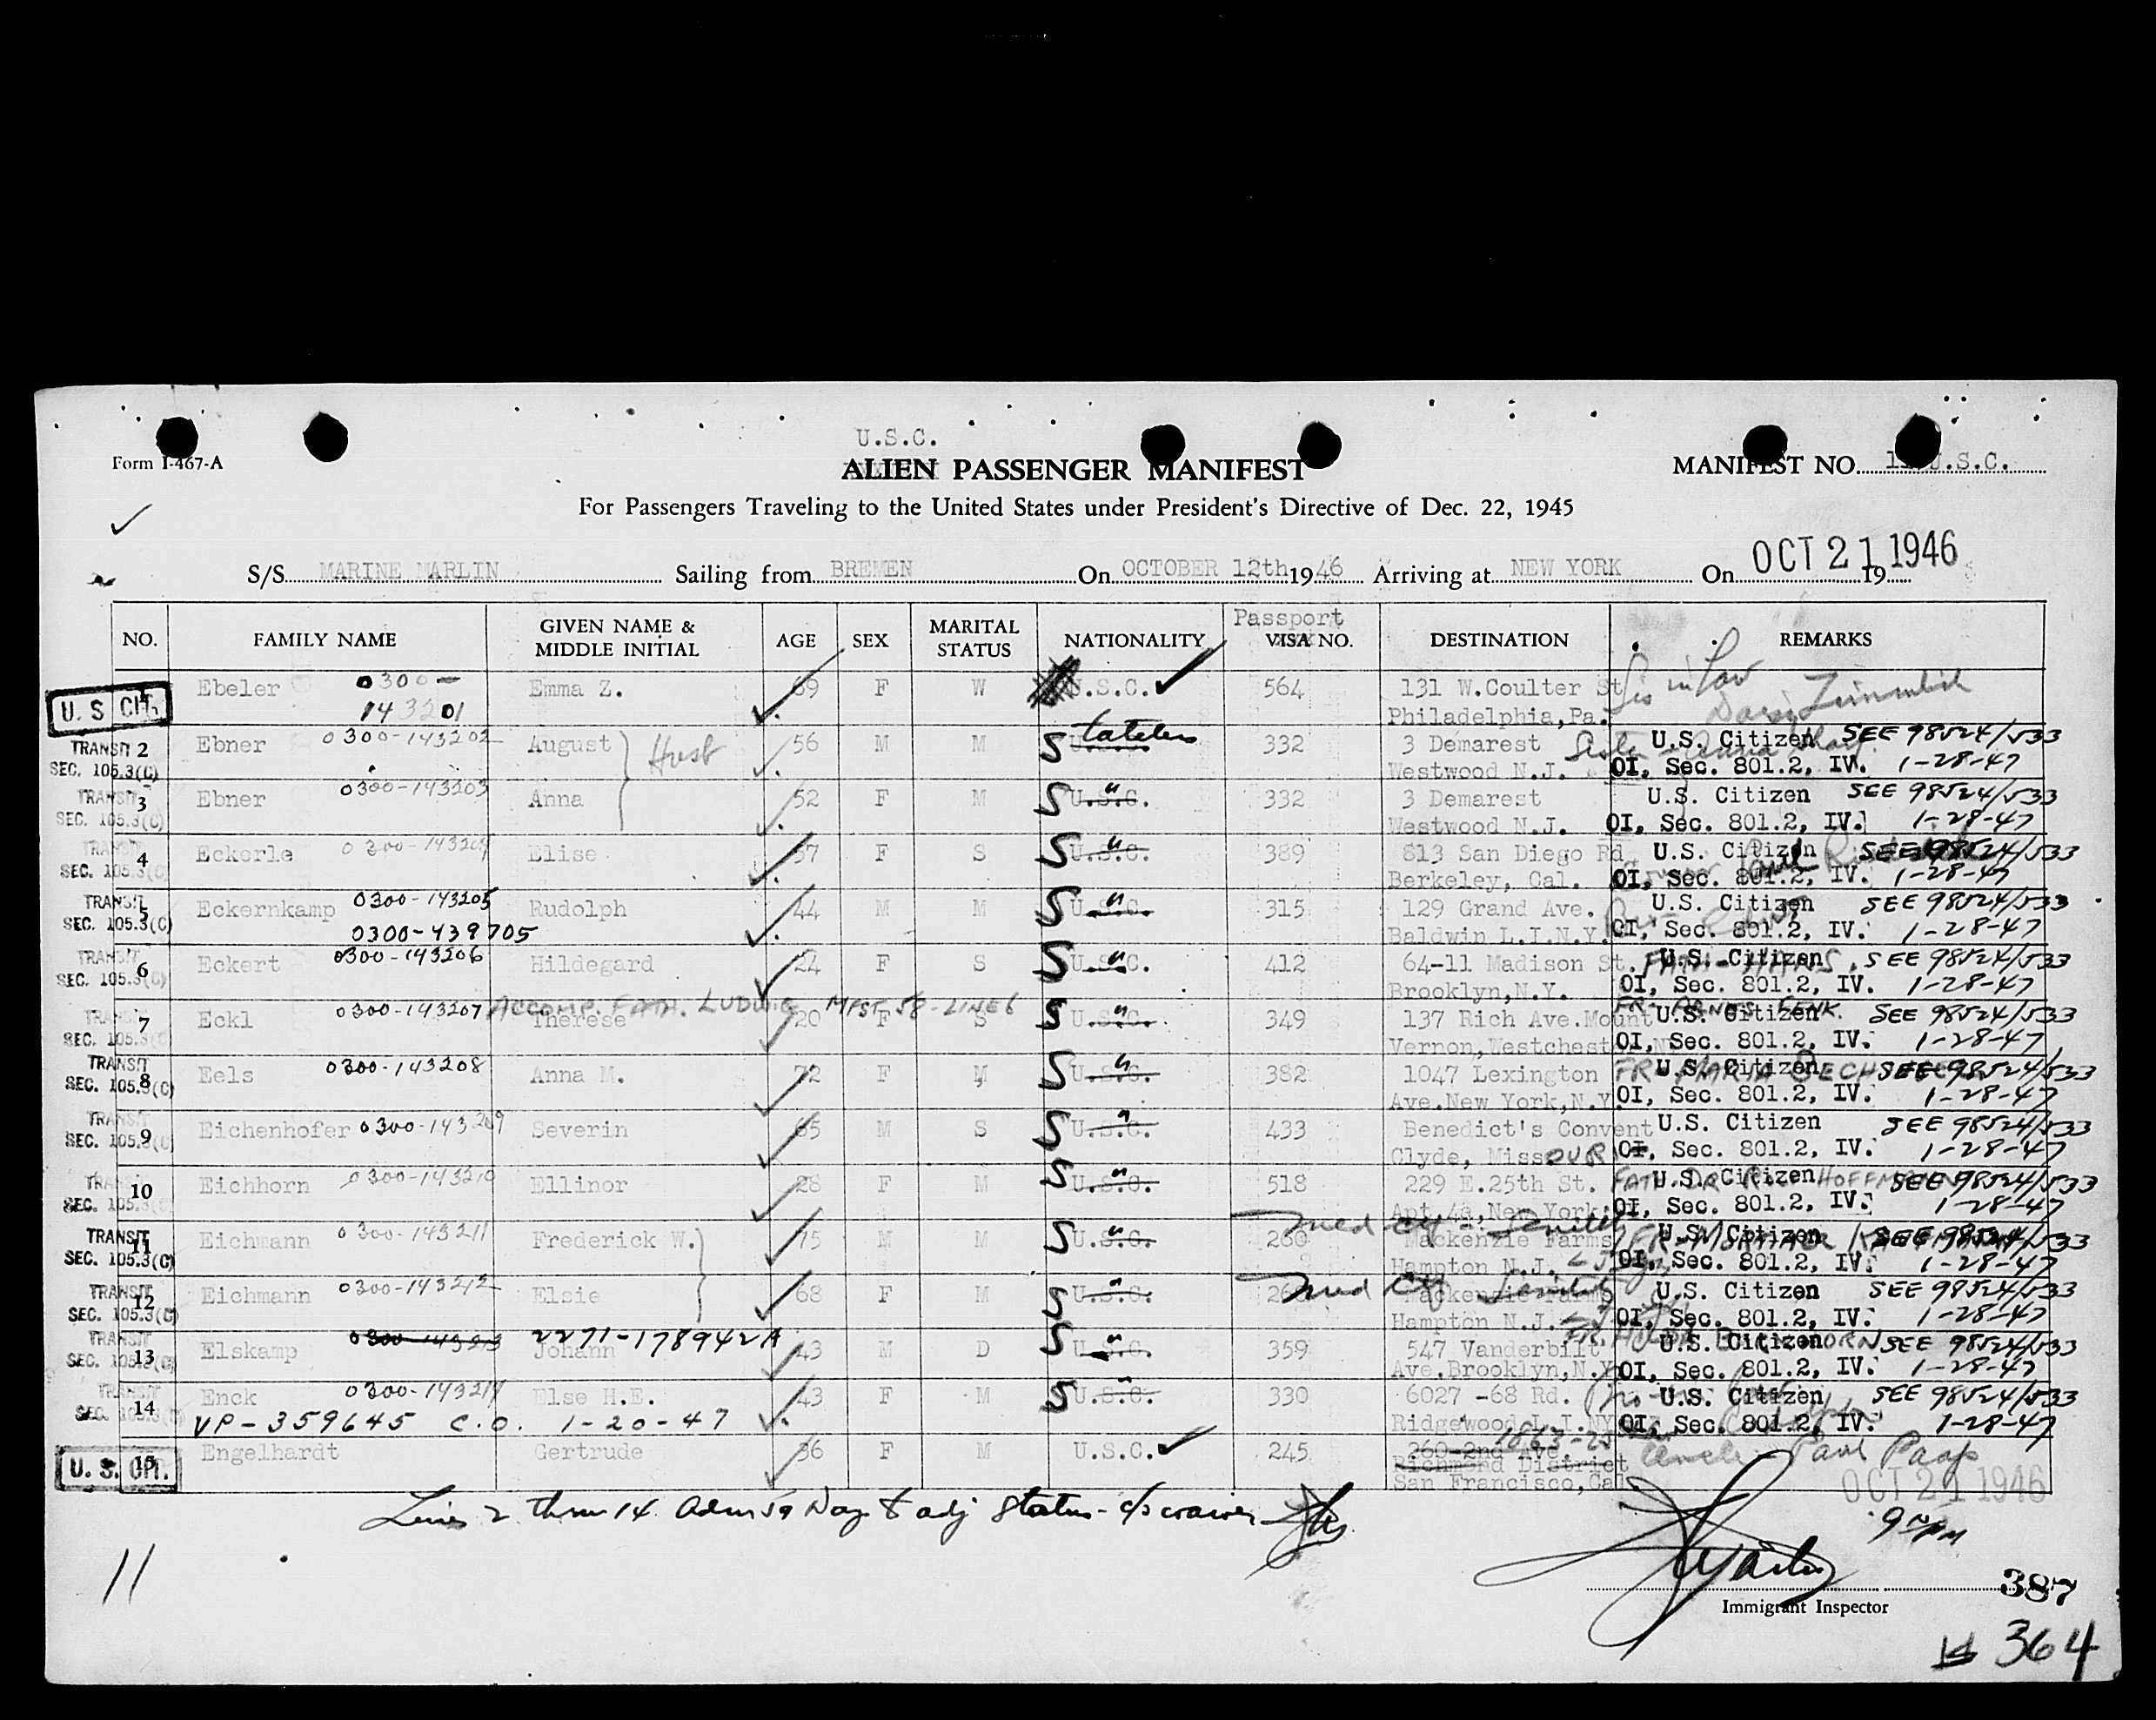 U.S.C.
Form I-467-A
ALIEN PASSENGER MANIFEST
MANIFEST NO. U.S.C.
For Passengers Traveling to the United States under President's Directive of Dec. 22, 1945
S/S MARINE MARLIN Sailing from BREMEN On OCTOBER 12th 1946 Arriving at NEW YORK On OCT 21 1946 19
NO. FAMILY NAME GIVEN NAME & MIDDLE INITIAL AGE SEX MARITAL STATUS NATIONALITY Passport VISA NO. DESTINATION REMARKS
U. S. CIT. 1 Ebeler 0300- Emma Z. 69 F W U.S.C. 564 131 W.Coulter St Sis in Law
143201 Philadelphia,Pa.
TRANSIT 2 Ebner 0300-143202 August Husb 56 M M Stateless U.S.C. 332 3 Demarest U.S. Citizen SEE 98524/533
SEC. 105.3(C) Westwood N.J. OI, Sec. 801.2, IV. 1-28-47
TRANSIT 3 Ebner 0300-143203 Anna 52 F M S " U.S.C. 332 3 Demarest U.S. Citizen SEE 98524/533
SEC. 105.3(C) Westwood N.J. OI, Sec. 801.2, IV. 1-28-47
TRANSIT 4 Eckerle 0300-143204 Elise 57 F S S " U.S.C. 389 813 San Diego Rd. U.S. Citizen SEE 98524/533
SEC. 105.3(C) Berkeley, Cal. OI, Sec. 801.2, IV. 1-28-47
TRANSIT 5 Eckernkamp 0300-143205 Rudolph 44 M M S " U.S.C. 315 129 Grand Ave. U.S. Citizen SEE 98524/533
SEC. 105.3(C) 0300-439705 Baldwin L.I.N.Y. OI, Sec. 801.2, IV. 1-28-47
TRANSIT 6 Eckert 0300-143206 Hildegard 24 F S S " U.S.C. 412 64-11 Madison St. FATH-HANS U.S. Citizen SEE 98524/533
SEC. 105.3(C) Brooklyn,N.Y. OI, Sec. 801.2, IV. 1-28-47
ACCOMP. FATH. LUDWIG MFST 58-LINE 6
TRANSIT 7 Eckl 0300-143207 Therese 20 F S S " U.S.C. 349 137 Rich Ave.Mount U.S. Citizen SEE 98524/533
SEC. 105.3(C) Vernon,Westchest OI, Sec. 801.2, IV. 1-28-47
TRANSIT 8 Eels 0300-143208 Anna M. 72 F M S " U.S.C. 382 1047 Lexington U.S. Citizen SEE 98524/533
SEC. 105.3(C) Ave.New York,N.Y. OI, Sec. 801.2, IV. 1-28-47
TRANSIT 9 Eichenhofer 0300-143209 Severin 65 M S S " U.S.C. 433 Benedict's Convent U.S. Citizen SEE 98524/533
SEC. 105.3(C) Clyde, MissOURI OI, Sec. 801.2, IV. 1-28-47
TRANSIT 10 Eichhorn 0300-143210 Ellinor 28 F M S " U.S.C. 518 229 E.25th St. U.S. Citizen SEE 98524/533
SEC. 105.3(C) Apt.4a,New York OI, Sec. 801.2, IV. 1-28-47
TRANSIT 11 Eichmann 0300-143211 Frederick W. 75 M M S " U.S.C. 260 med ctf - Senility Mackenzie Farms U.S. Citizen SEE 98524/533
SEC. 105.3(C) Hampton N.J. OI, Sec. 801.2, IV. 1-28-47
TRANSIT 12 Eichmann 0300-143212 Elsie 68 F M S " U.S.C. 260 med ctf Senility Mackenzie Farms U.S. Citizen SEE 98524/533
SEC. 105.3(C) Hampton N.J. OI, Sec. 801.2, IV. 1-28-47
TRANSIT 13 Elskamp 0300-143213 2271-178942A Johann 43 M D S " U.S.C. 359 547 Vanderbilt U.S. Citizen SEE 98524/533
SEC. 105.3(C) Ave.Brooklyn,N.Y. OI, Sec. 801.2, IV. 1-28-47
TRANSIT 14 Enck 0300-143214 Else H.E. 43 F M S " U.S.C. 330 6027 -68 Rd. U.S. Citizen SEE 98524/533
SEC. 105.3(C) VP-359645 C.O. 1-20-47 Ridgewood L.I.NY OI, Sec. 801.2, IV. 1-28-47
U. S. CIT. 15 Engelhardt Gertrude 36 F M U.S.C. 245 260-2nd Ave. 1863-25 Uncle Paul Paap
Richmond District
San Francisco,Cal OCT 21 1946
Lines 2 thru 14 Adm 59 Days to adj status -
9 PM
11
Immigrant Inspector
387
14 364